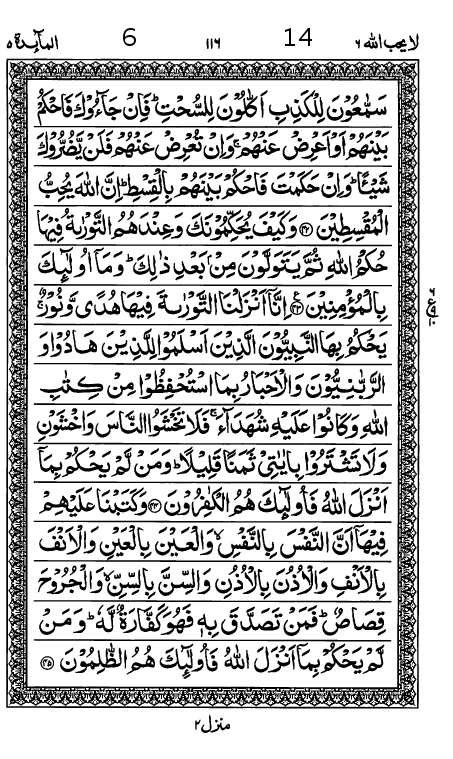 لا يحب الله ٦ 14 ١١٦ 6 المآئدة ٥
سَمّٰعُوْنَ لِلْكَذِبِ اَكّٰلُوْنَ لِلسُّحْتِ ؕ فَاِنْ جَآءُوْكَ فَاحْكُمْ
بَيْنَهُمْ اَوْ اَعْرِضْ عَنْهُمْ ۚ وَاِنْ تُعْرِضْ عَنْهُمْ فَلَنْ يَّضُرُّوْكَ
شَيْـًٔا ؕ وَاِنْ حَكَمْتَ فَاحْكُمْ بَيْنَهُمْ بِالْقِسْطِ ؕ اِنَّ اللّٰهَ يُحِبُّ
الْمُقْسِطِيْنَ ﴿۴۲﴾ وَكَيْفَ يُحَكِّمُوْنَكَ وَعِنْدَهُمُ التَّوْرٰىةُ فِيْهَا
حُكْمُ اللّٰهِ ثُمَّ يَتَوَلَّوْنَ مِنْۢ بَعْدِ ذٰلِكَ ؕ وَمَاۤ اُولٰٓئِكَ
بِالْمُؤْمِنِيْنَ ﴿۴۳﴾ ع اِنَّاۤ اَنْزَلْنَا التَّوْرٰىةَ فِيْهَا هُدًى وَّنُوْرٌ ۚ
يَحْكُمُ بِهَا النَّبِيُّوْنَ الَّذِيْنَ اَسْلَمُوْا لِلَّذِيْنَ هَادُوْا وَ
الرَّبّٰنِيُّوْنَ وَالْاَحْبَارُ بِمَا اسْتُحْفِظُوْا مِنْ كِتٰبِ
اللّٰهِ وَكَانُوْا عَلَيْهِ شُهَدَآءَ ۚ فَلَا تَخْشَوُا النَّاسَ وَاخْشَوْنِ
وَلَا تَشْتَرُوْا بِاٰيٰتِيْ ثَمَنًا قَلِيْلًا ؕ وَمَنْ لَّمْ يَحْكُمْ بِمَاۤ
اَنْزَلَ اللّٰهُ فَاُولٰٓئِكَ هُمُ الْكٰفِرُوْنَ ﴿۴۴﴾ وَكَتَبْنَا عَلَيْهِمْ
فِيْهَاۤ اَنَّ النَّفْسَ بِالنَّفْسِ ۙ وَالْعَيْنَ بِالْعَيْنِ وَالْاَنْفَ
بِالْاَنْفِ وَالْاُذُنَ بِالْاُذُنِ وَالسِّنَّ بِالسِّنِّ ۙ وَالْجُرُوْحَ
قِصَاصٌ ؕ فَمَنْ تَصَدَّقَ بِهٖ فَهُوَ كَفَّارَةٌ لَّهٗ ؕ وَمَنْ
لَّمْ يَحْكُمْ بِمَاۤ اَنْزَلَ اللّٰهُ فَاُولٰٓئِكَ هُمُ الظّٰلِمُوْنَ ﴿۴۵﴾
منزل ٢